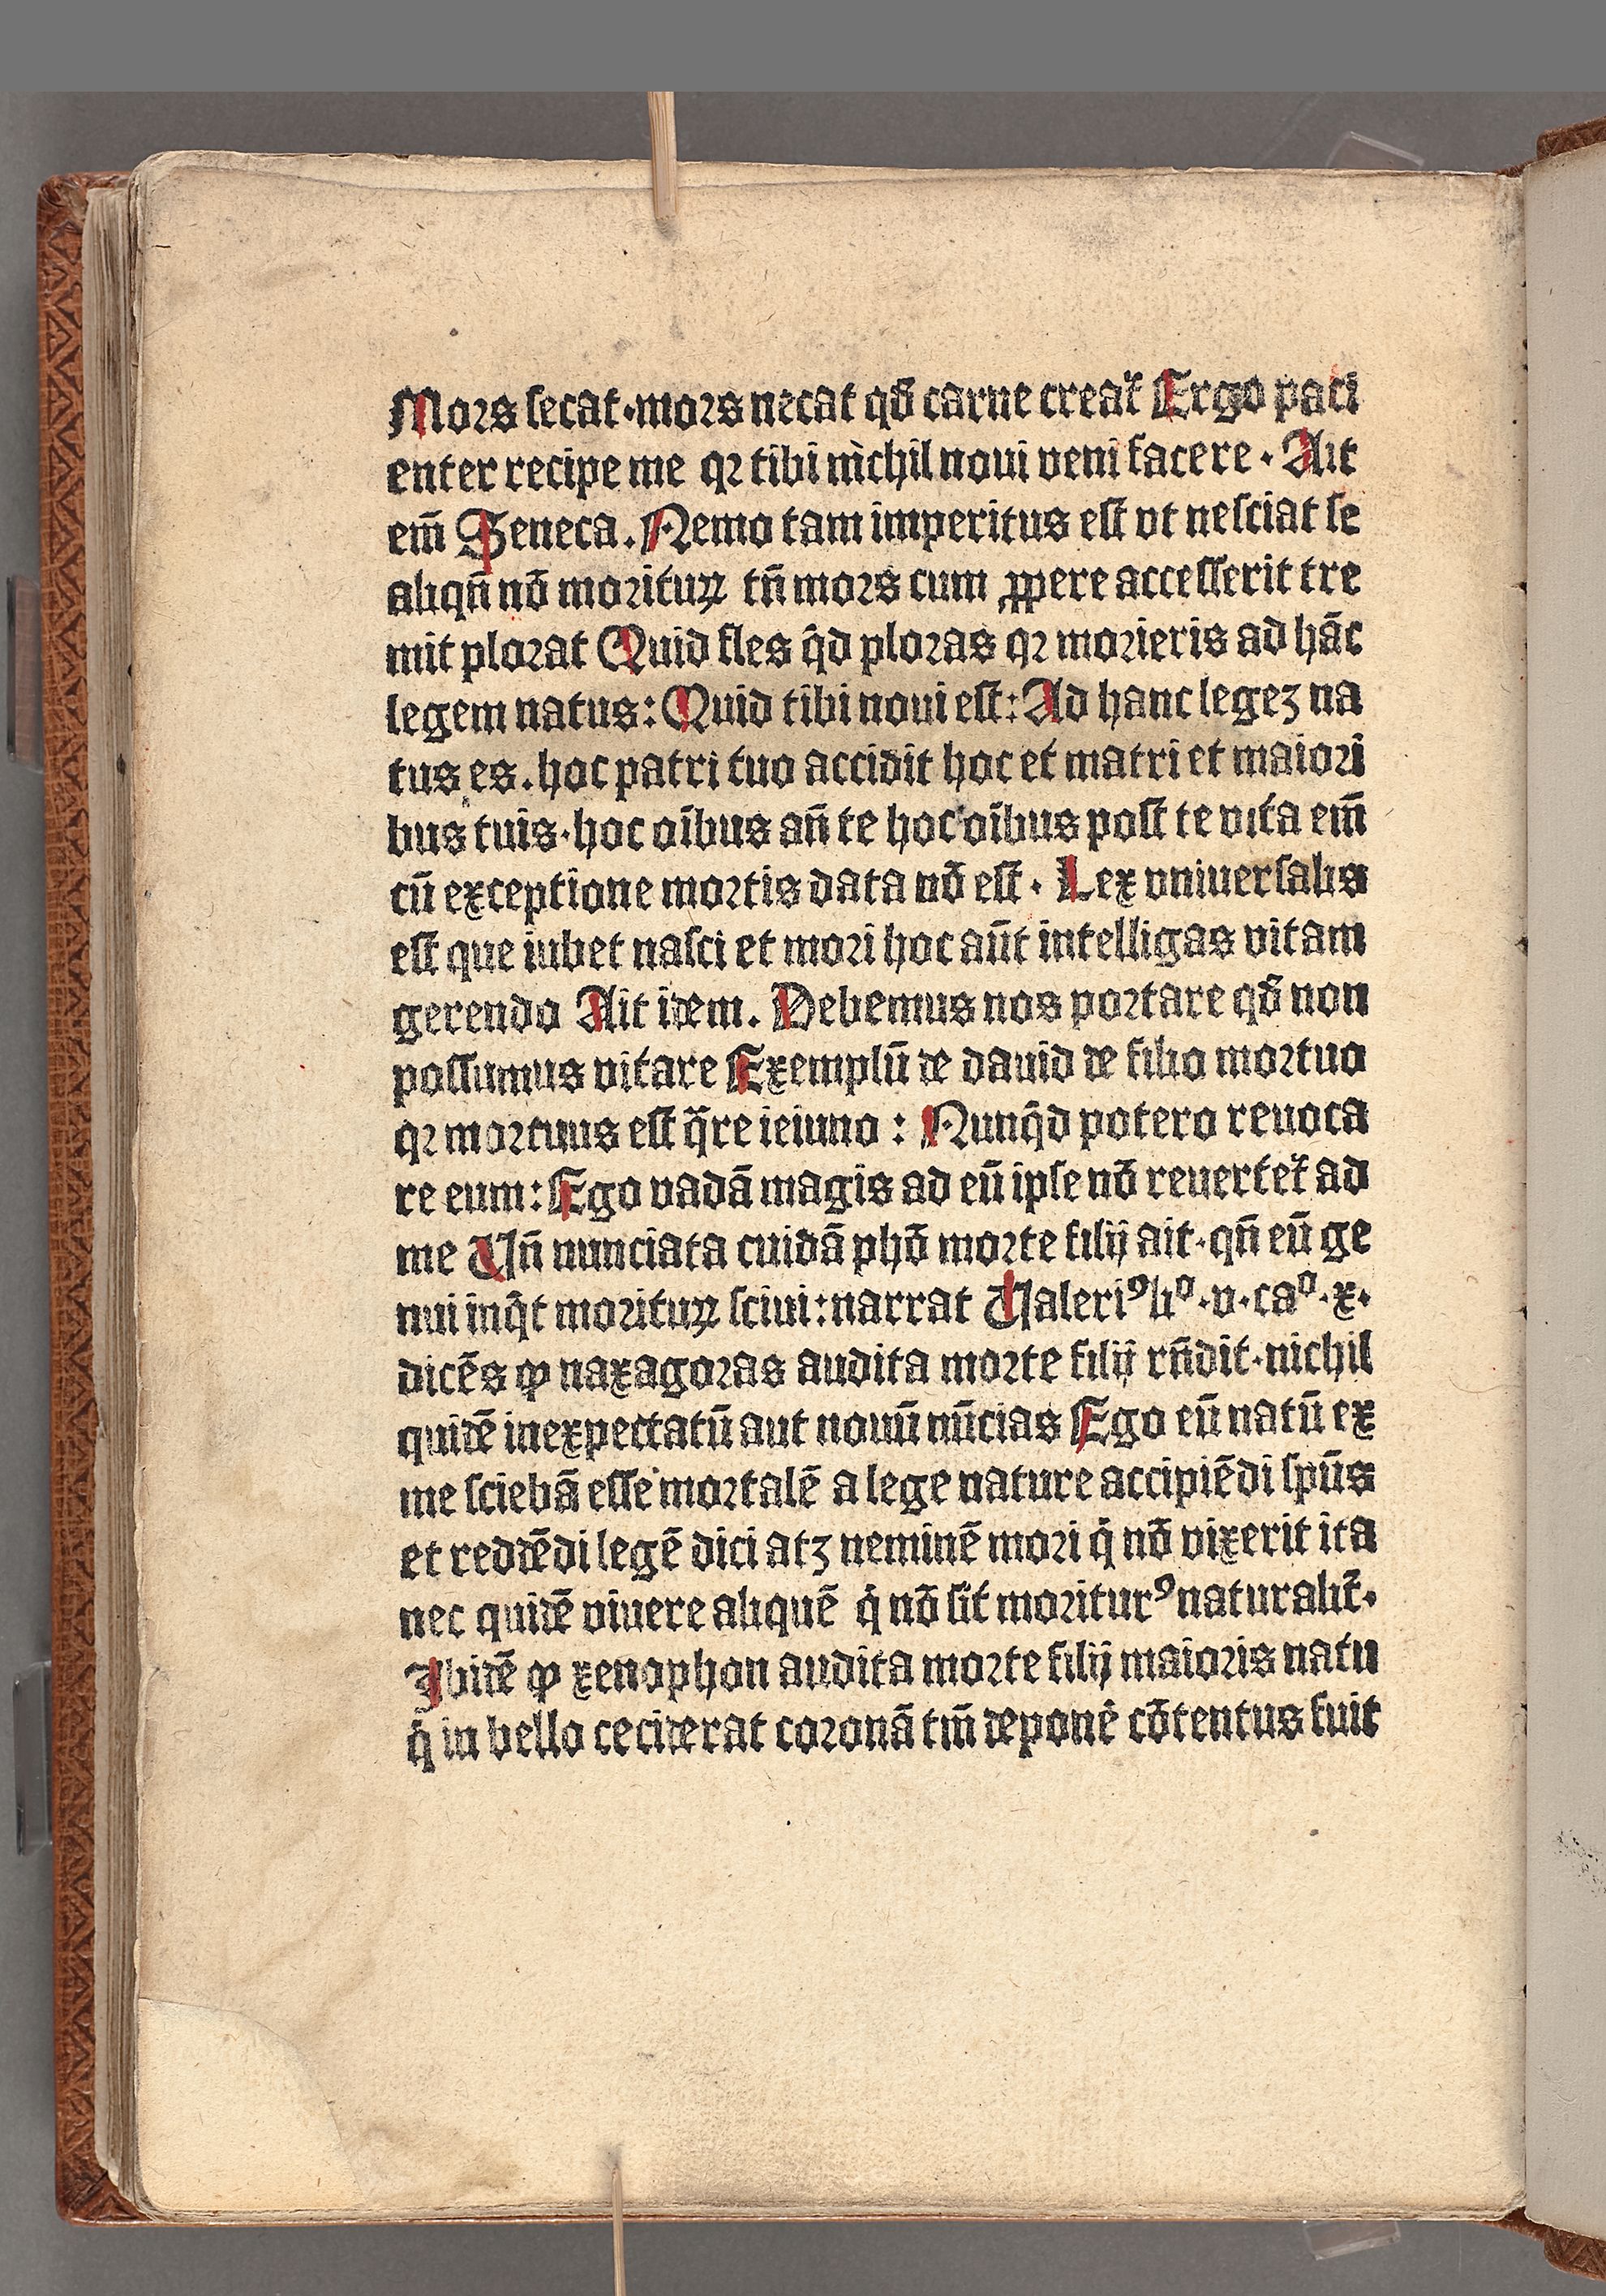 Mors ſecat·mors necat qd̄ carne creat᷑ Ergo paci
enter recipe me qꝛ tibi nichil noui veni facere · Ait
em̄ Seneca. Nemo tam imperitus eſt vt neſciat ſe
aliqn̄ nō moꝛituꝝ tn̄ moꝛs cum ꝓpere acceſſerit tre
mit ploꝛat Quid fles q̇d ploꝛas qꝛ moꝛieris ad hāc
legem natus: Quid tibi noui eſt: Ad hanc legeꝫ na
tus es. hoc patri tuo accidit hoc et matri et maioꝛi
bus tuis·hoc oībus an̄ te hoc oībus poſt te vita em̄
cū exceptione moꝛtis data nō eſt · Lex vniuerſalis
eſt que iubet naſci et moꝛi hoc aūt intelligas vitam
gerendo Ait idem. Debemus nos poꝛtare qd̄ non
poſſumus vitare Exemplū de dauid de filio moꝛtuo
qꝛ moꝛtuus eſt q̄re ieiuno : Nunq̇d potero reuoca
re eum: Ego vadā magis ad eū ipſe nō reuertet᷑ ad
me Vn̄ nunciata cuidā phō moꝛte filij ait·qn̄ eū ge
nui inq̇t moꝛituꝝ ſciui: narrat Valeriꝰ liº·v·caº·x·
dicēs ꝙ naxagoꝛas audita moꝛte filij rn̄dit·nichil
quidē inexpectatū aut nouū nūcias Ego eū natū ex
me ſciebā eſſe moꝛtalē a lege nature accipiēdi ſpūs
et reddēdi legē dici atꝫ neminē moꝛi q̇ nō vixerit ita
nec quidē viuere aliquē q̇ nō ſit moꝛiturꝰ naturalit᷑·
Ibidē ꝙ xenophon audita moꝛte filij maioꝛis natu
q̇ in bello ceciderat coꝛonā tm̄ deponē cōtentus fuit